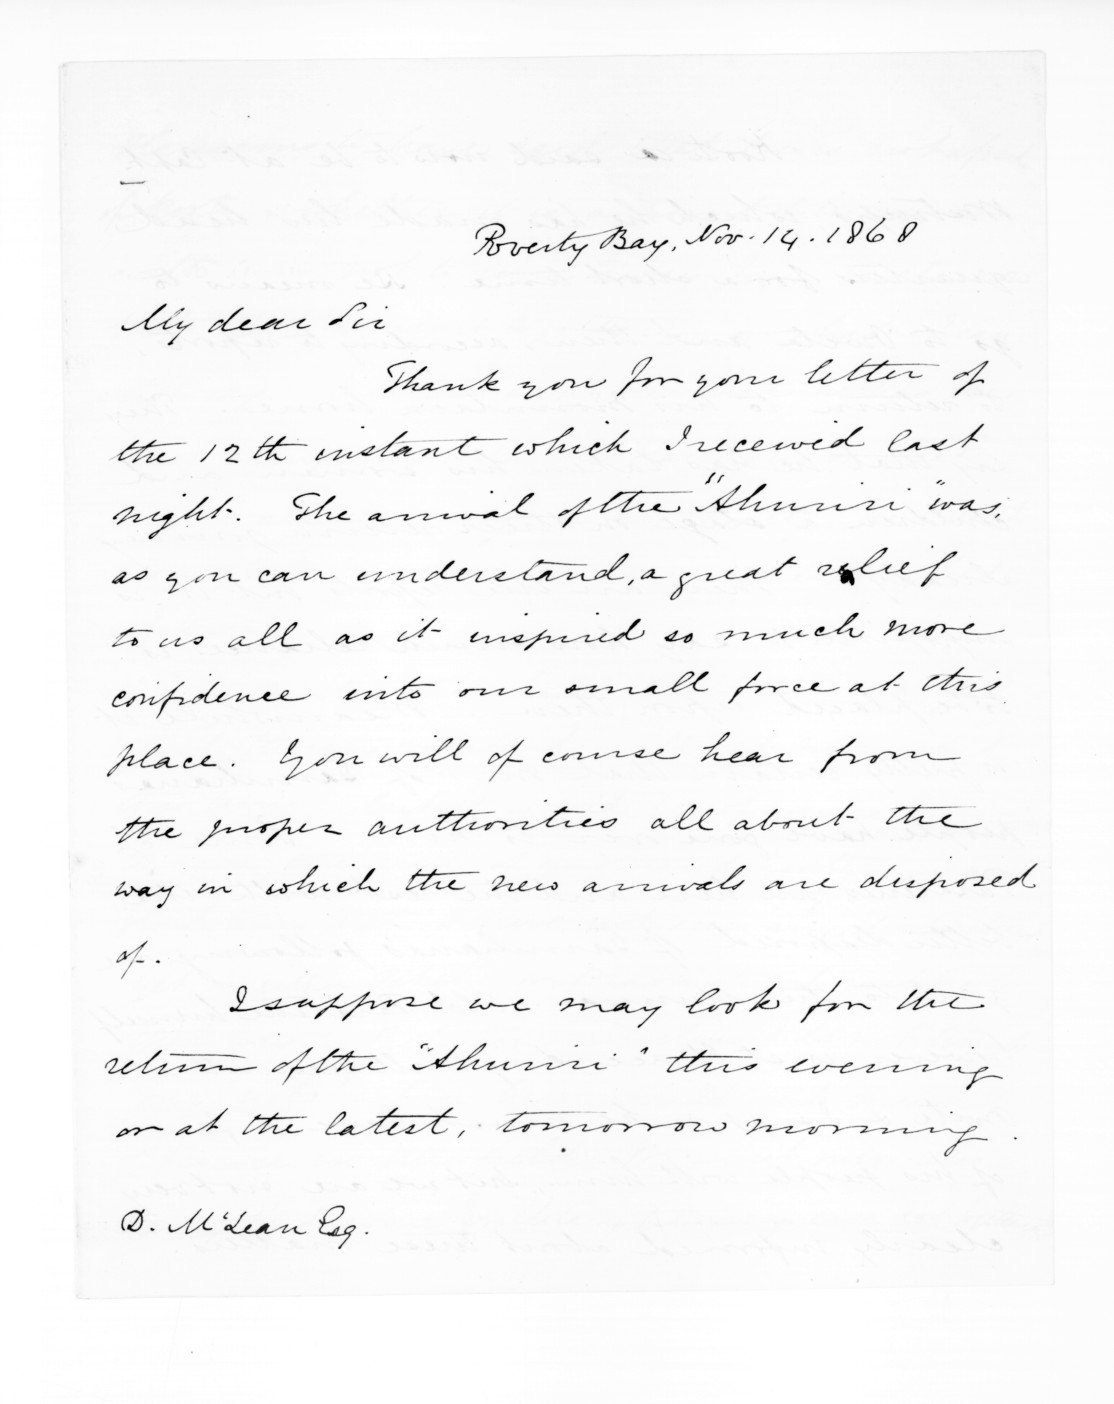 Poverty Bay, Nov. 14. 1868
My dear Sir
Thank you for your letter of
the 12th instant which I received last
night. The arrival of the "Ahuriri" was,
as you can understand, a great relief
to us all as it inspired so much more
confidence into our small force at this
place. You will of course hear from
the proper authorities all about the
way in which the new arrivals are disposed
of.
I suppose we may look for the
return of the "Ahuriri" this evening
or at the latest, tomorrow morning.
D. McLean Esq.